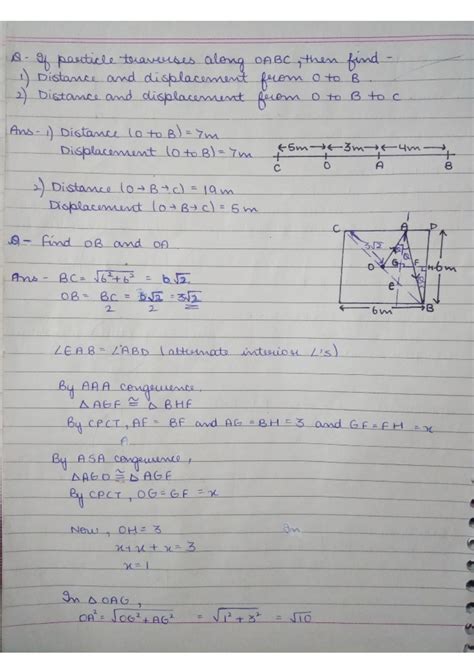 Q- If particle traverses along OABC, then find -
1) Distance and displacement from O to B.
2) Distance and displacement from O to B to C
Ans- 1) Distance (O to B) = 7m
Displacement (O to B) = 7m
←5m→ ←3m→ ←4m→
C O A B
2) Distance (O→B→C) = 19m
Displacement (O→B→C) = 5m
Q- Find OB and OA
Ans- BC = √6²+6² = 6√2
OB = BC/2 = 6√2/2 = 3√2
C A D
3√2
O G F H 6m
E
6m B
∠EAB = ∠ABD (alternate interior ∠'s)
By AAA congruence,
△AGF ≅ △BHF
By CPCT, AF = BF and AG = BH = 3 and GF = FH = x
By ASA congruence,
△AGO ≅ △AGF
By CPCT, OG = GF = x
Now, OH = 3
x + x + x = 3
x = 1
In △OAG,
OA² = √OG² + AG² = √1² + 3² = √10